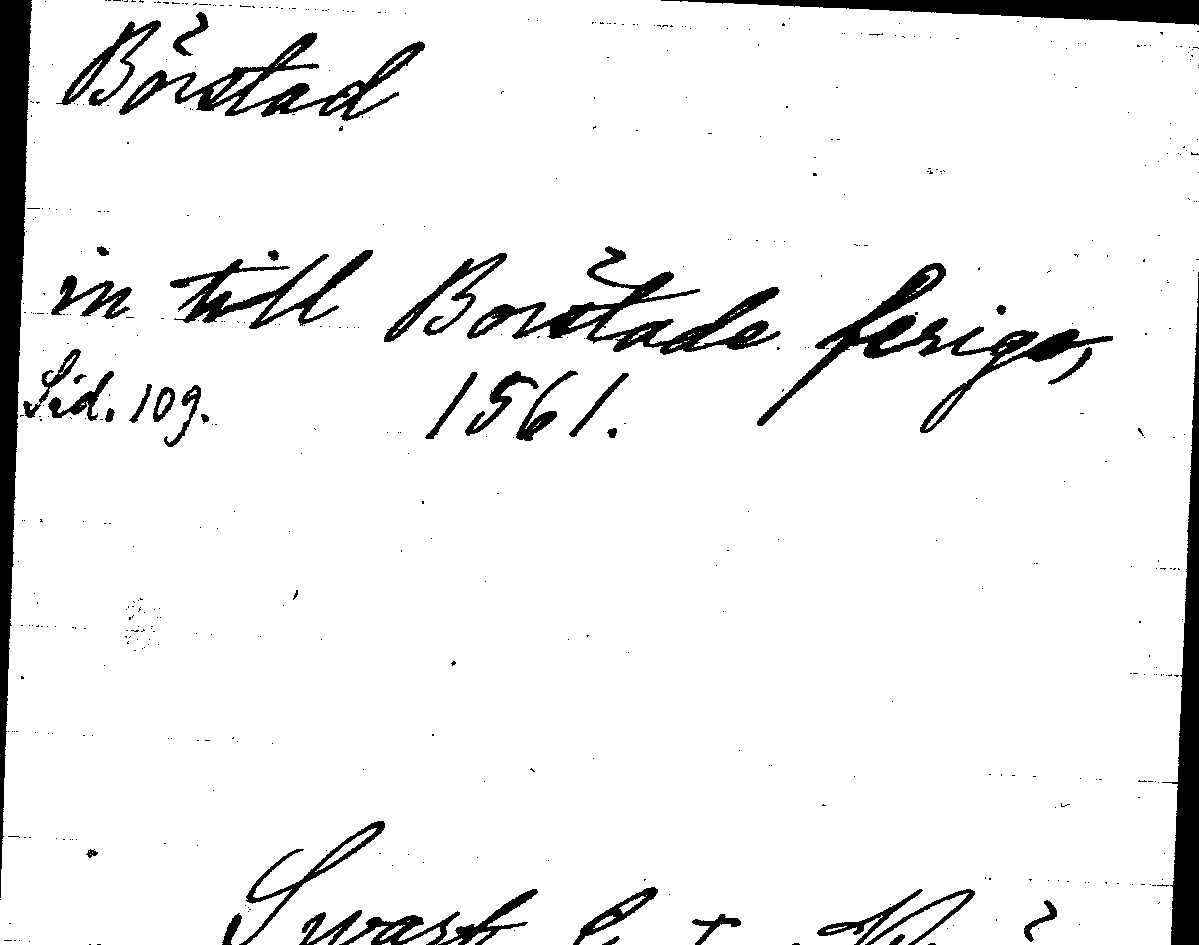 Börstad
in till Börstade feriga,
Sid. 109. 1561.